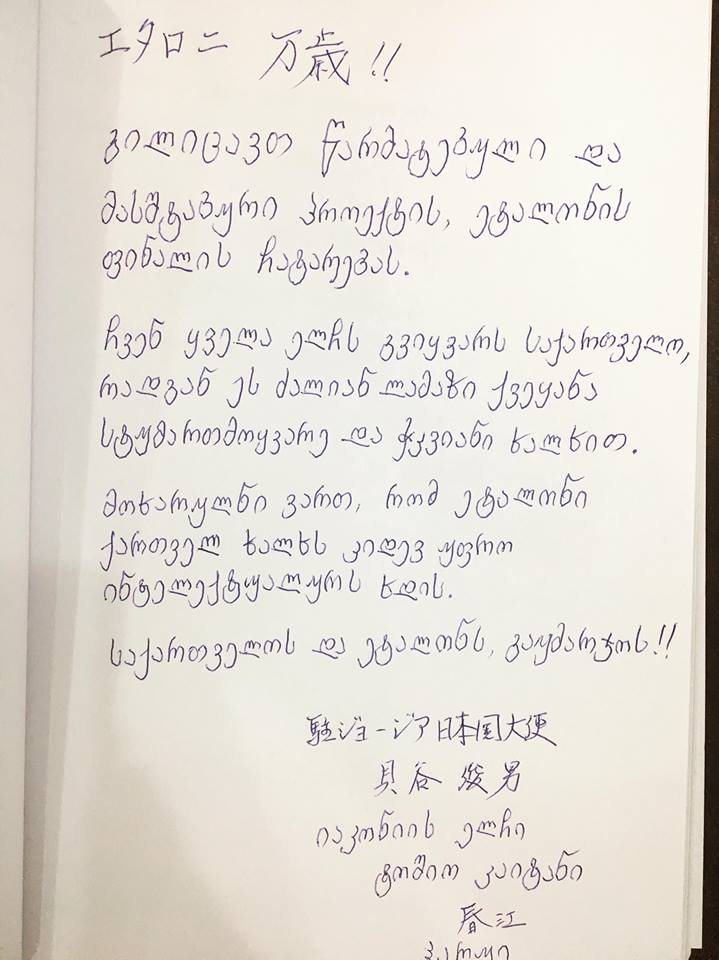 エタロニ 万歳!!
გილოცავთ წარმატებული და
მასშტაბური პროექტის, ეტალონის
ფინალის ჩატარებას.
ჩვენ ყველა ელჩს გვიყვარს საქართველო,
რადგან ეს ძალიან ლამაზი ქვეყანა
სტუმართმოყვარე და ჭკვიანი ხალხით.
მოხარულნი ვართ, რომ ეტალონი
ქართველ ხალხს კიდევ უფრო
ინტელექტუალურს ხდის.
საქართველოს და ეტალონს, გაუმარჯოს!!
駐ジョージア日本国大使
貝谷 俊男
იაპონიის ელჩი
ტოშიო კაიტანი
春江
ჰარუე